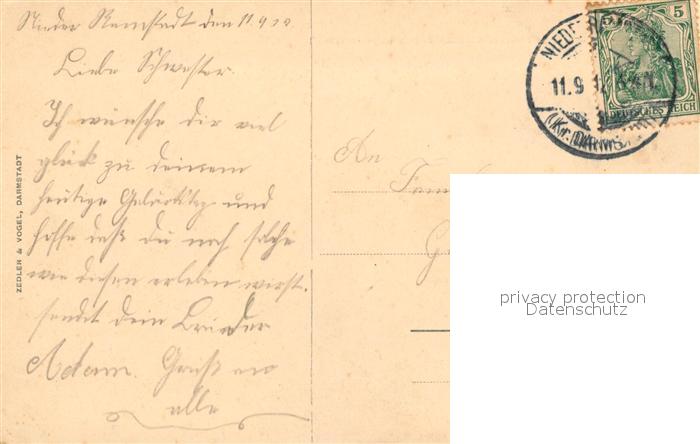 Nieder Ramstadt den 11.9.12
Liebe Schwester.
Ich wünsche dir viel
glück zu deinem
heutige Geburtstag und
hoffe daß du noch solche
wie diesen erleben wirst.
sendet dein Bruder
Adam. Gruß an
alle
ZEDLER & VOGEL, DARMSTADT
An
NIEDER
11.9.12
(Kr. DARMS
5
DEUTSCHES REICH
privacy protection
Datenschutz